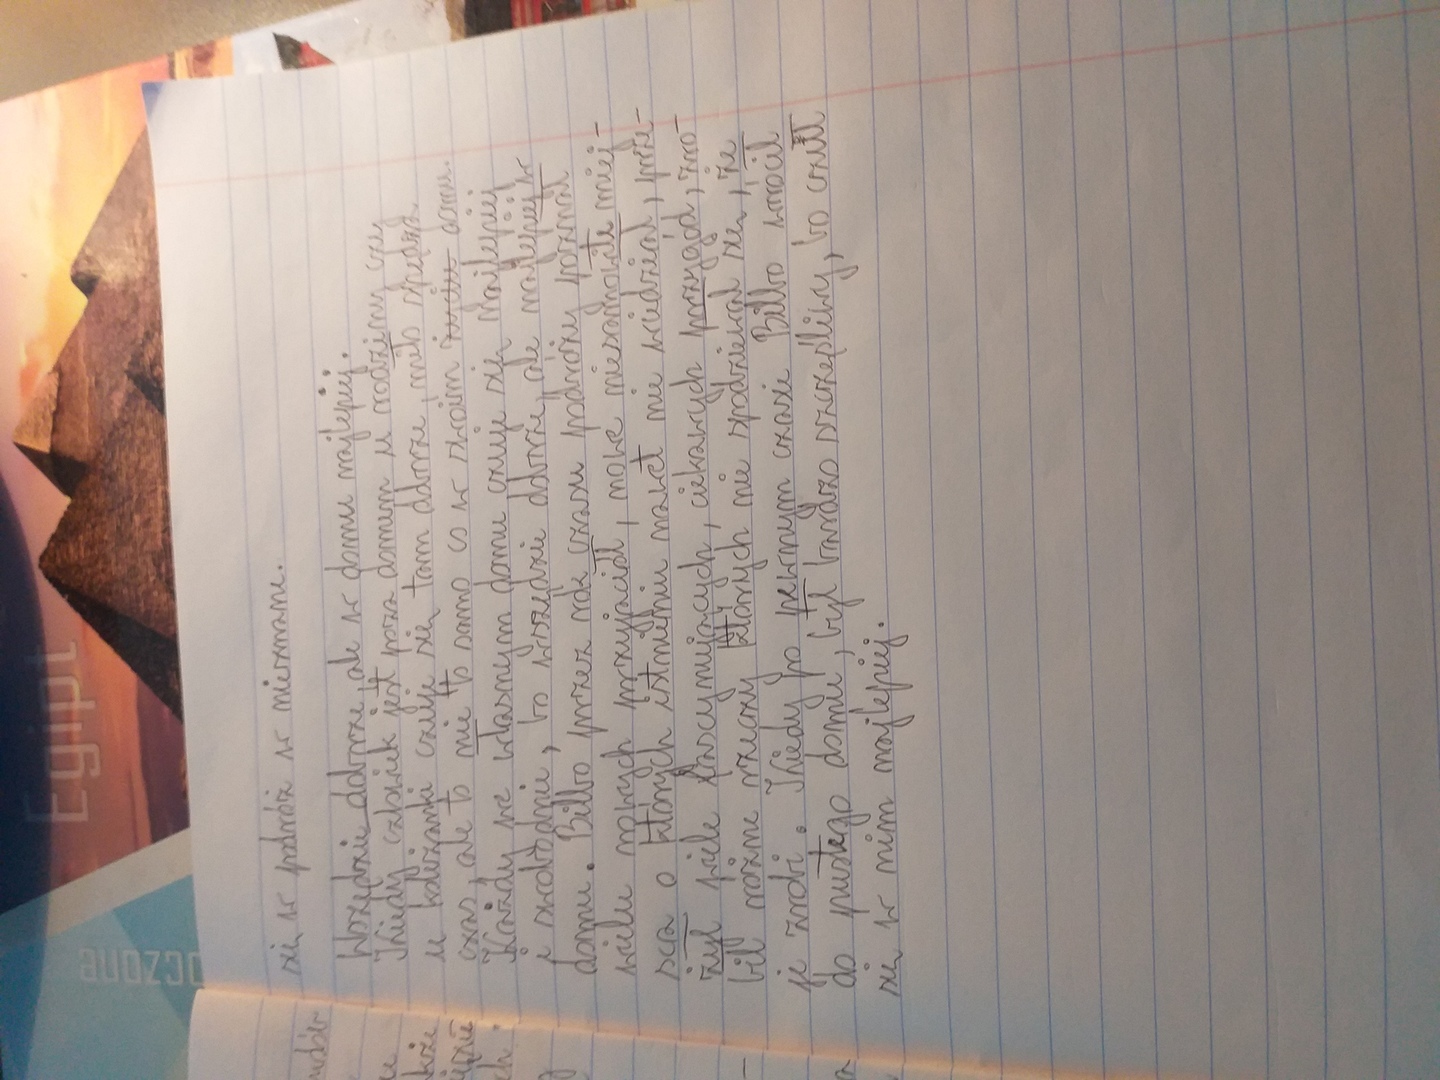 się w podróż w nieznane.
Wszędzie dobrze, ale w domu najlepiej.
Kiedy człowiek jest poza domem u rodziny czy
u koleżanki czuje się tam dobrze, miło spędza
czas, ale to nie to samo co w swoim domu.
Każdy we własnym domu czuje się najlepiej
i swobodnie, bo wszędzie dobrze, ale najlepiej w
domu. Bilbo przez cały czasu podróży poznał
wielu nowych przyjaciół, nowe niesamowite miej-
sca o których istnieniu nawet nie wiedział, prze-
żył wiele fascynujących, ciekawych przygód, zro-
bił różne rzeczy których nie spodziewał się, że
je zrobi. Kiedy po pewnym czasie Bilbo wrócił
do pustego domu, był bardzo szczęśliwy, bo czuł
się w nim najlepiej.
Egipt